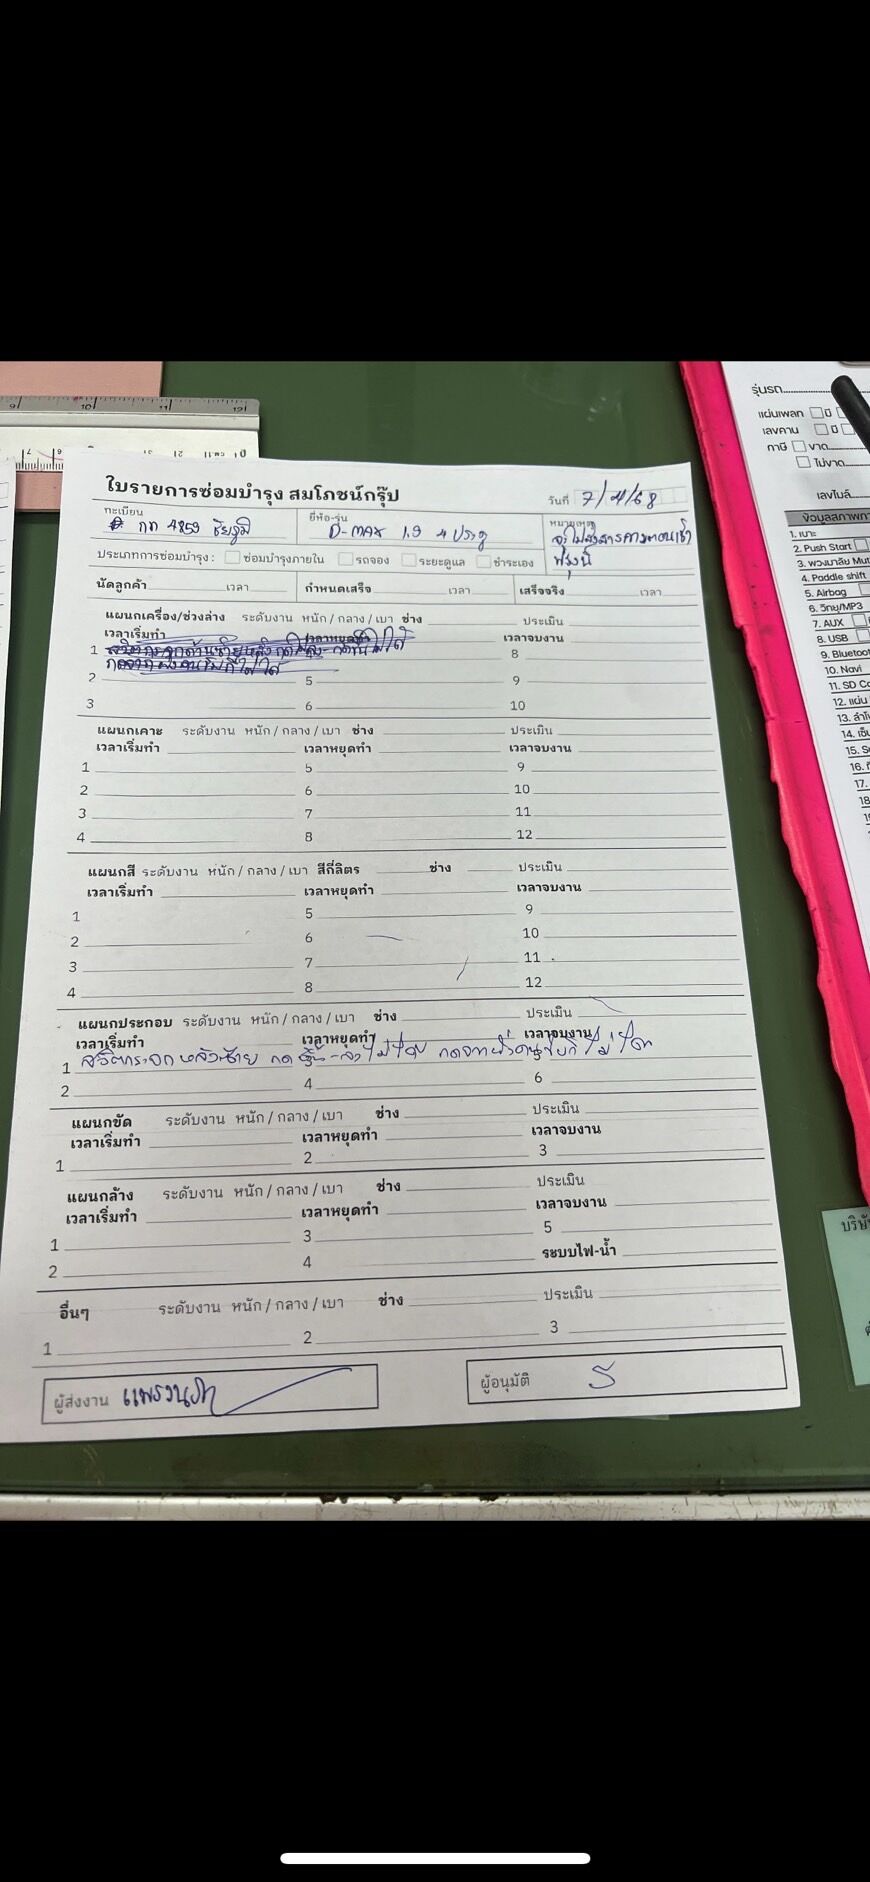 ใบรายการซ่อมบำรุง สมโภชน์กรุ๊ป
วันที่ 7/4/68
ทะเบียน กท 4859 ชัยภูมิ
ยี่ห้อ-รุ่น D-MAX 1.9 4 ประตู
หมายเหตุ พรุ่งนี้
ประเภทการซ่อมบำรุง : ซ่อมบำรุงภายใน รถจอง ระยะดูแล ชำระเอง
นัดลูกค้า เวลา กำหนดเสร็จ เวลา เสร็จจริง เวลา
แผนกเครื่อง/ช่วงล่าง ระดับงาน หนัก / กลาง / เบา ช่าง ประเมิน
เวลาเริ่มทำ เวลาหยุดทำ เวลาจบงาน
1 8
2 5 9
3 6 10
แผนกเคาะ ระดับงาน หนัก / กลาง / เบา ช่าง ประเมิน
เวลาเริ่มทำ เวลาหยุดทำ เวลาจบงาน
1 5 9
2 6 10
3 7 11
4 8 12
แผนกสี ระดับงาน หนัก / กลาง / เบา สีกี่ลิตร ช่าง ประเมิน
เวลาเริ่มทำ เวลาหยุดทำ เวลาจบงาน
1 5 9
2 6 10
3 7 11
4 8 12
แผนกประกอบ ระดับงาน หนัก / กลาง / เบา ช่าง ประเมิน
เวลาเริ่มทำ เวลาหยุดทำ เวลาจบงาน
1 สวิตกระจกหลังซ้าย กดขึ้น-ลงไม่ได้ กดจากฝั่งคนขับก็ไม่ได้
2 4 6
แผนกขัด ระดับงาน หนัก / กลาง / เบา ช่าง ประเมิน
เวลาเริ่มทำ เวลาหยุดทำ เวลาจบงาน
1 2 3
แผนกล้าง ระดับงาน หนัก / กลาง / เบา ช่าง ประเมิน
เวลาเริ่มทำ เวลาหยุดทำ เวลาจบงาน
1 3 5
2 4 ระบบไฟ-น้ำ
อื่นๆ ระดับงาน หนัก / กลาง / เบา ช่าง ประเมิน
1 2 3
ผู้ส่งงาน
ผู้อนุมัติ
รุ่นรถ
แผ่นเพลท มี
เลขคาน มี
ภาษี ขาด
ไม่ขาด
เลขไมล์
ข้อมูลสภาพภา
1. เบาะ
2. Push Start
3. พวงมาลัย Mul
4. Paddle shift
5. Airbag
6. วิทยุ/MP3
7. AUX
8. USB
9. Bluetoo
10. Navi
11. SD Ca
12. แผ่น
13. ลำโ
14. เซ็
15. Se
16.
17.
18
บริษั